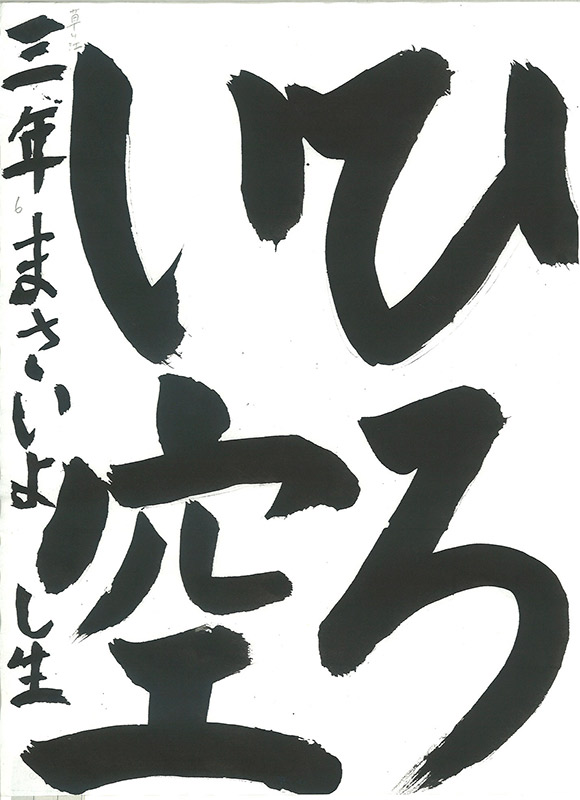 ひろ
い空
三年 まさいよし生
6